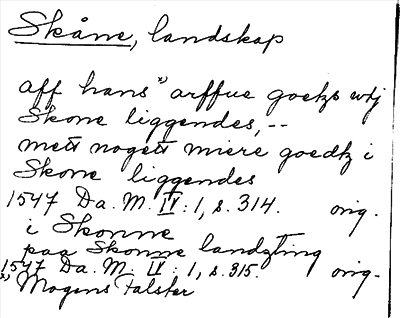 Skåne, landskap
aff hans x) arffue goetzs wdj
Skone liggendes,--
mett nogett miere goedtz i
Skone liggendes
1547 Da. M. IV: 1, s. 314. orig.
i Skonne
paa Skonne landzting
1547 Da. M. IV: 1, s. 315. orig-
x) Mogens Falster